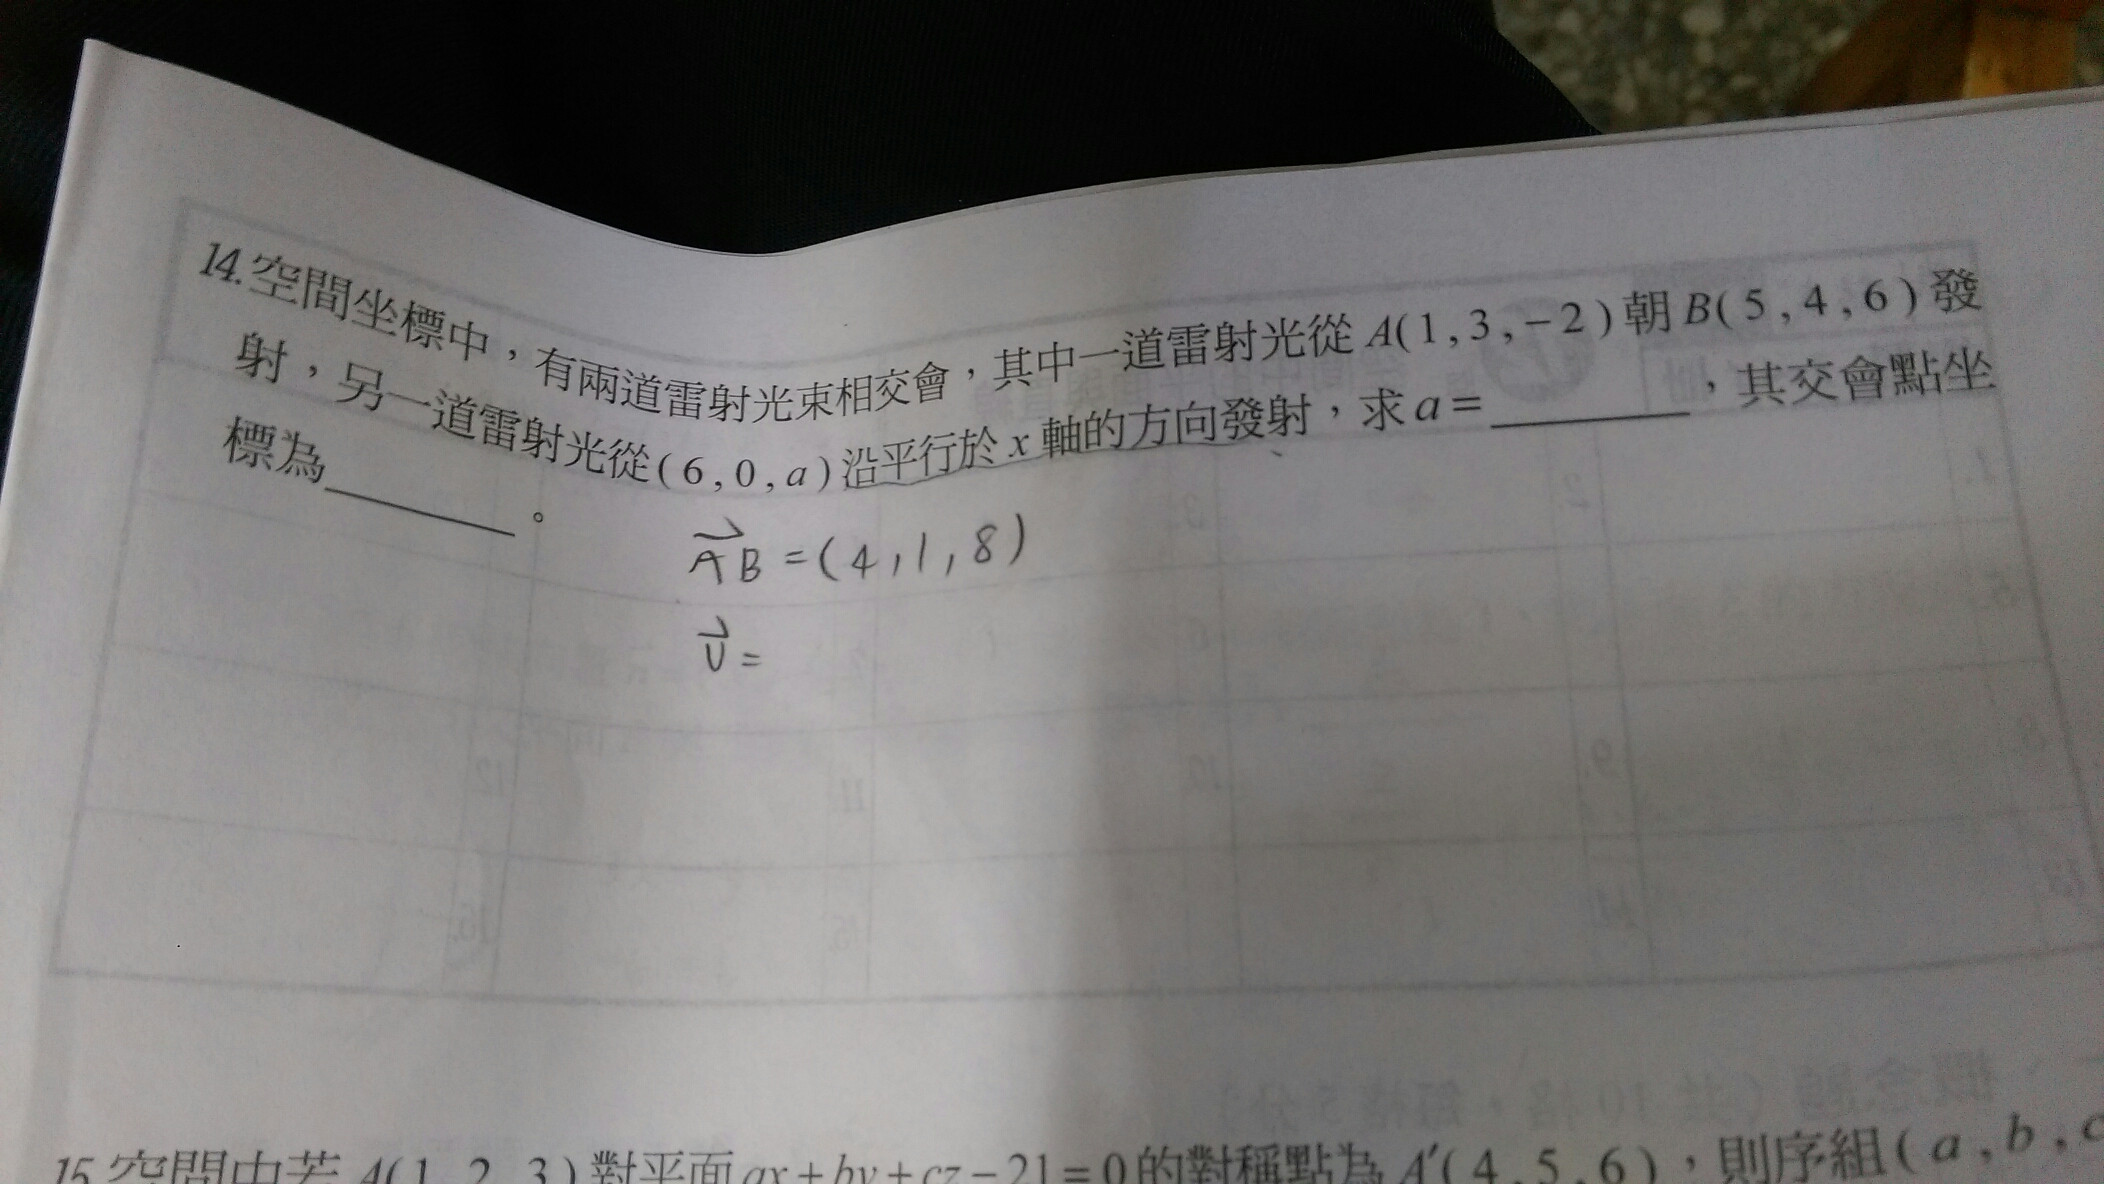 14.空間坐標中，有兩道雷射光束相交會，其中一道雷射光從 A(1,3,−2)朝B(5,4,6)發
射，另一道雷射光從(6,0,a)沿平行於 x 軸的方向發射，求 a=________，其交會點坐
標為________。
AB=(4,1,8)
v=
15.空間中若 A(1,2,3)對平面ax+by+cz−21=0的對稱點為 A′(4,5,6)，則序組(a,b,c